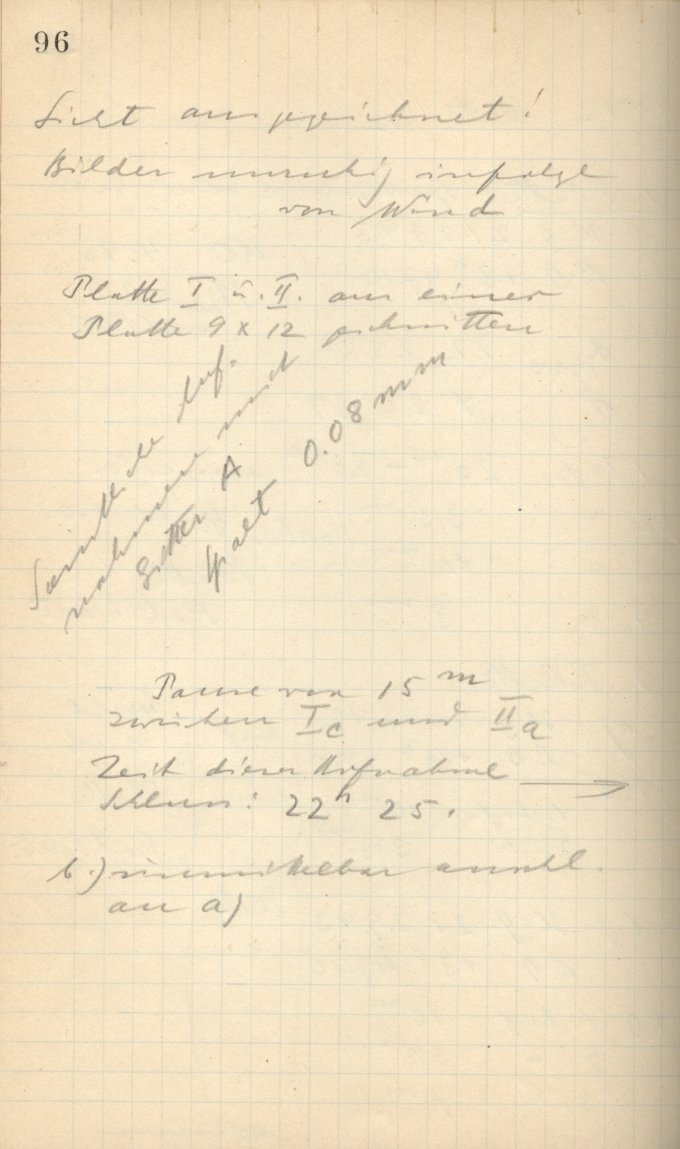 96
Sicht ausgezeichnet!
Bilder unruhig infolge
von Wind
Platte I u. II. aus einer
Platte 9 x 12 geschnitten
Sämtliche Auf-
nahmen mit
Gitter A
Spalt 0.08 mm
Pause von 15 m
zwischen I c und II a
Zeit dieser Aufnahme →
Schluss: 22 h 25.
b.) unmittelbar anschl.
an a)